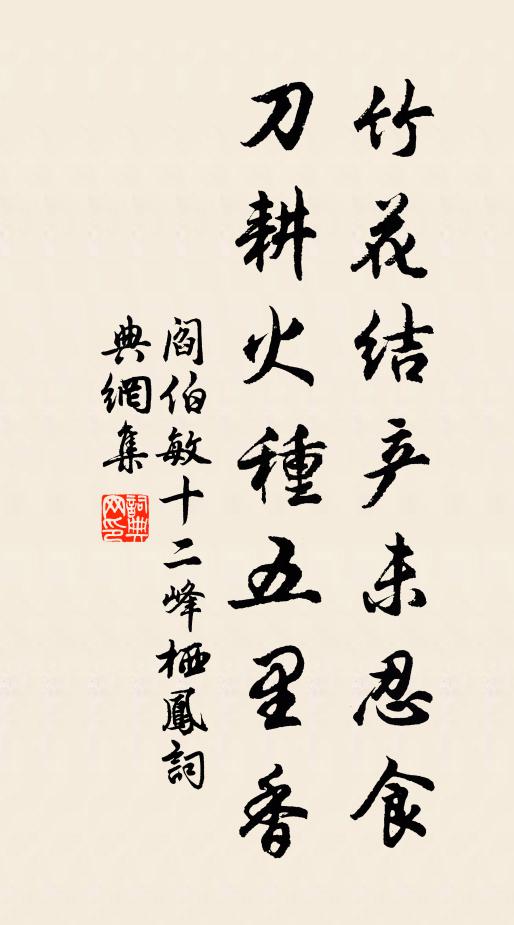 竹花结产未忍食
刀耕火種五里香
閻伯敏十二峰栖鳳詞
典網集
詞典網印